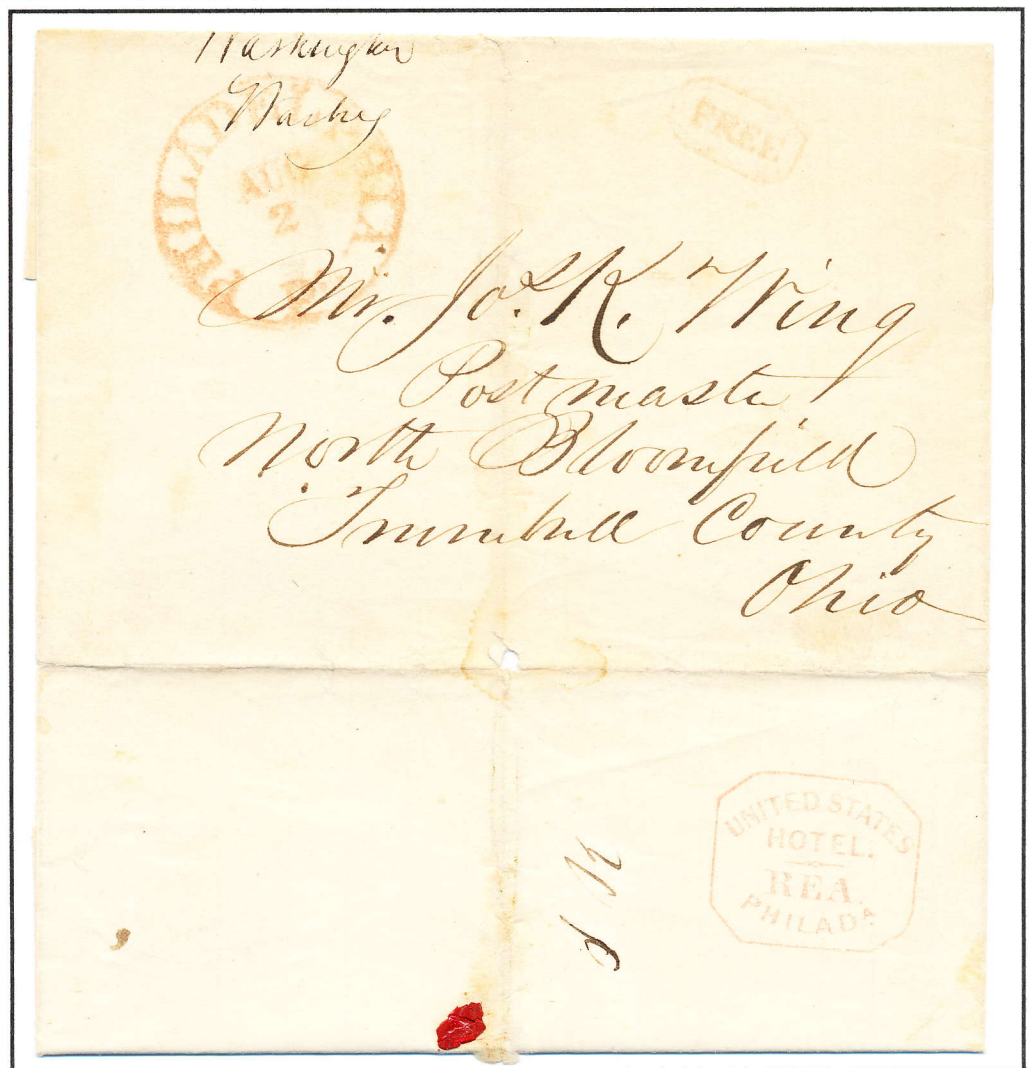 Washington
FREE
PHILADELPHIA
AUG
2
Mr. Jos. K. Wing
Postmaster
North Bloomfield
Trumbull County
Ohio
UNITED STATES
HOTEL.
REA.
PHILADA